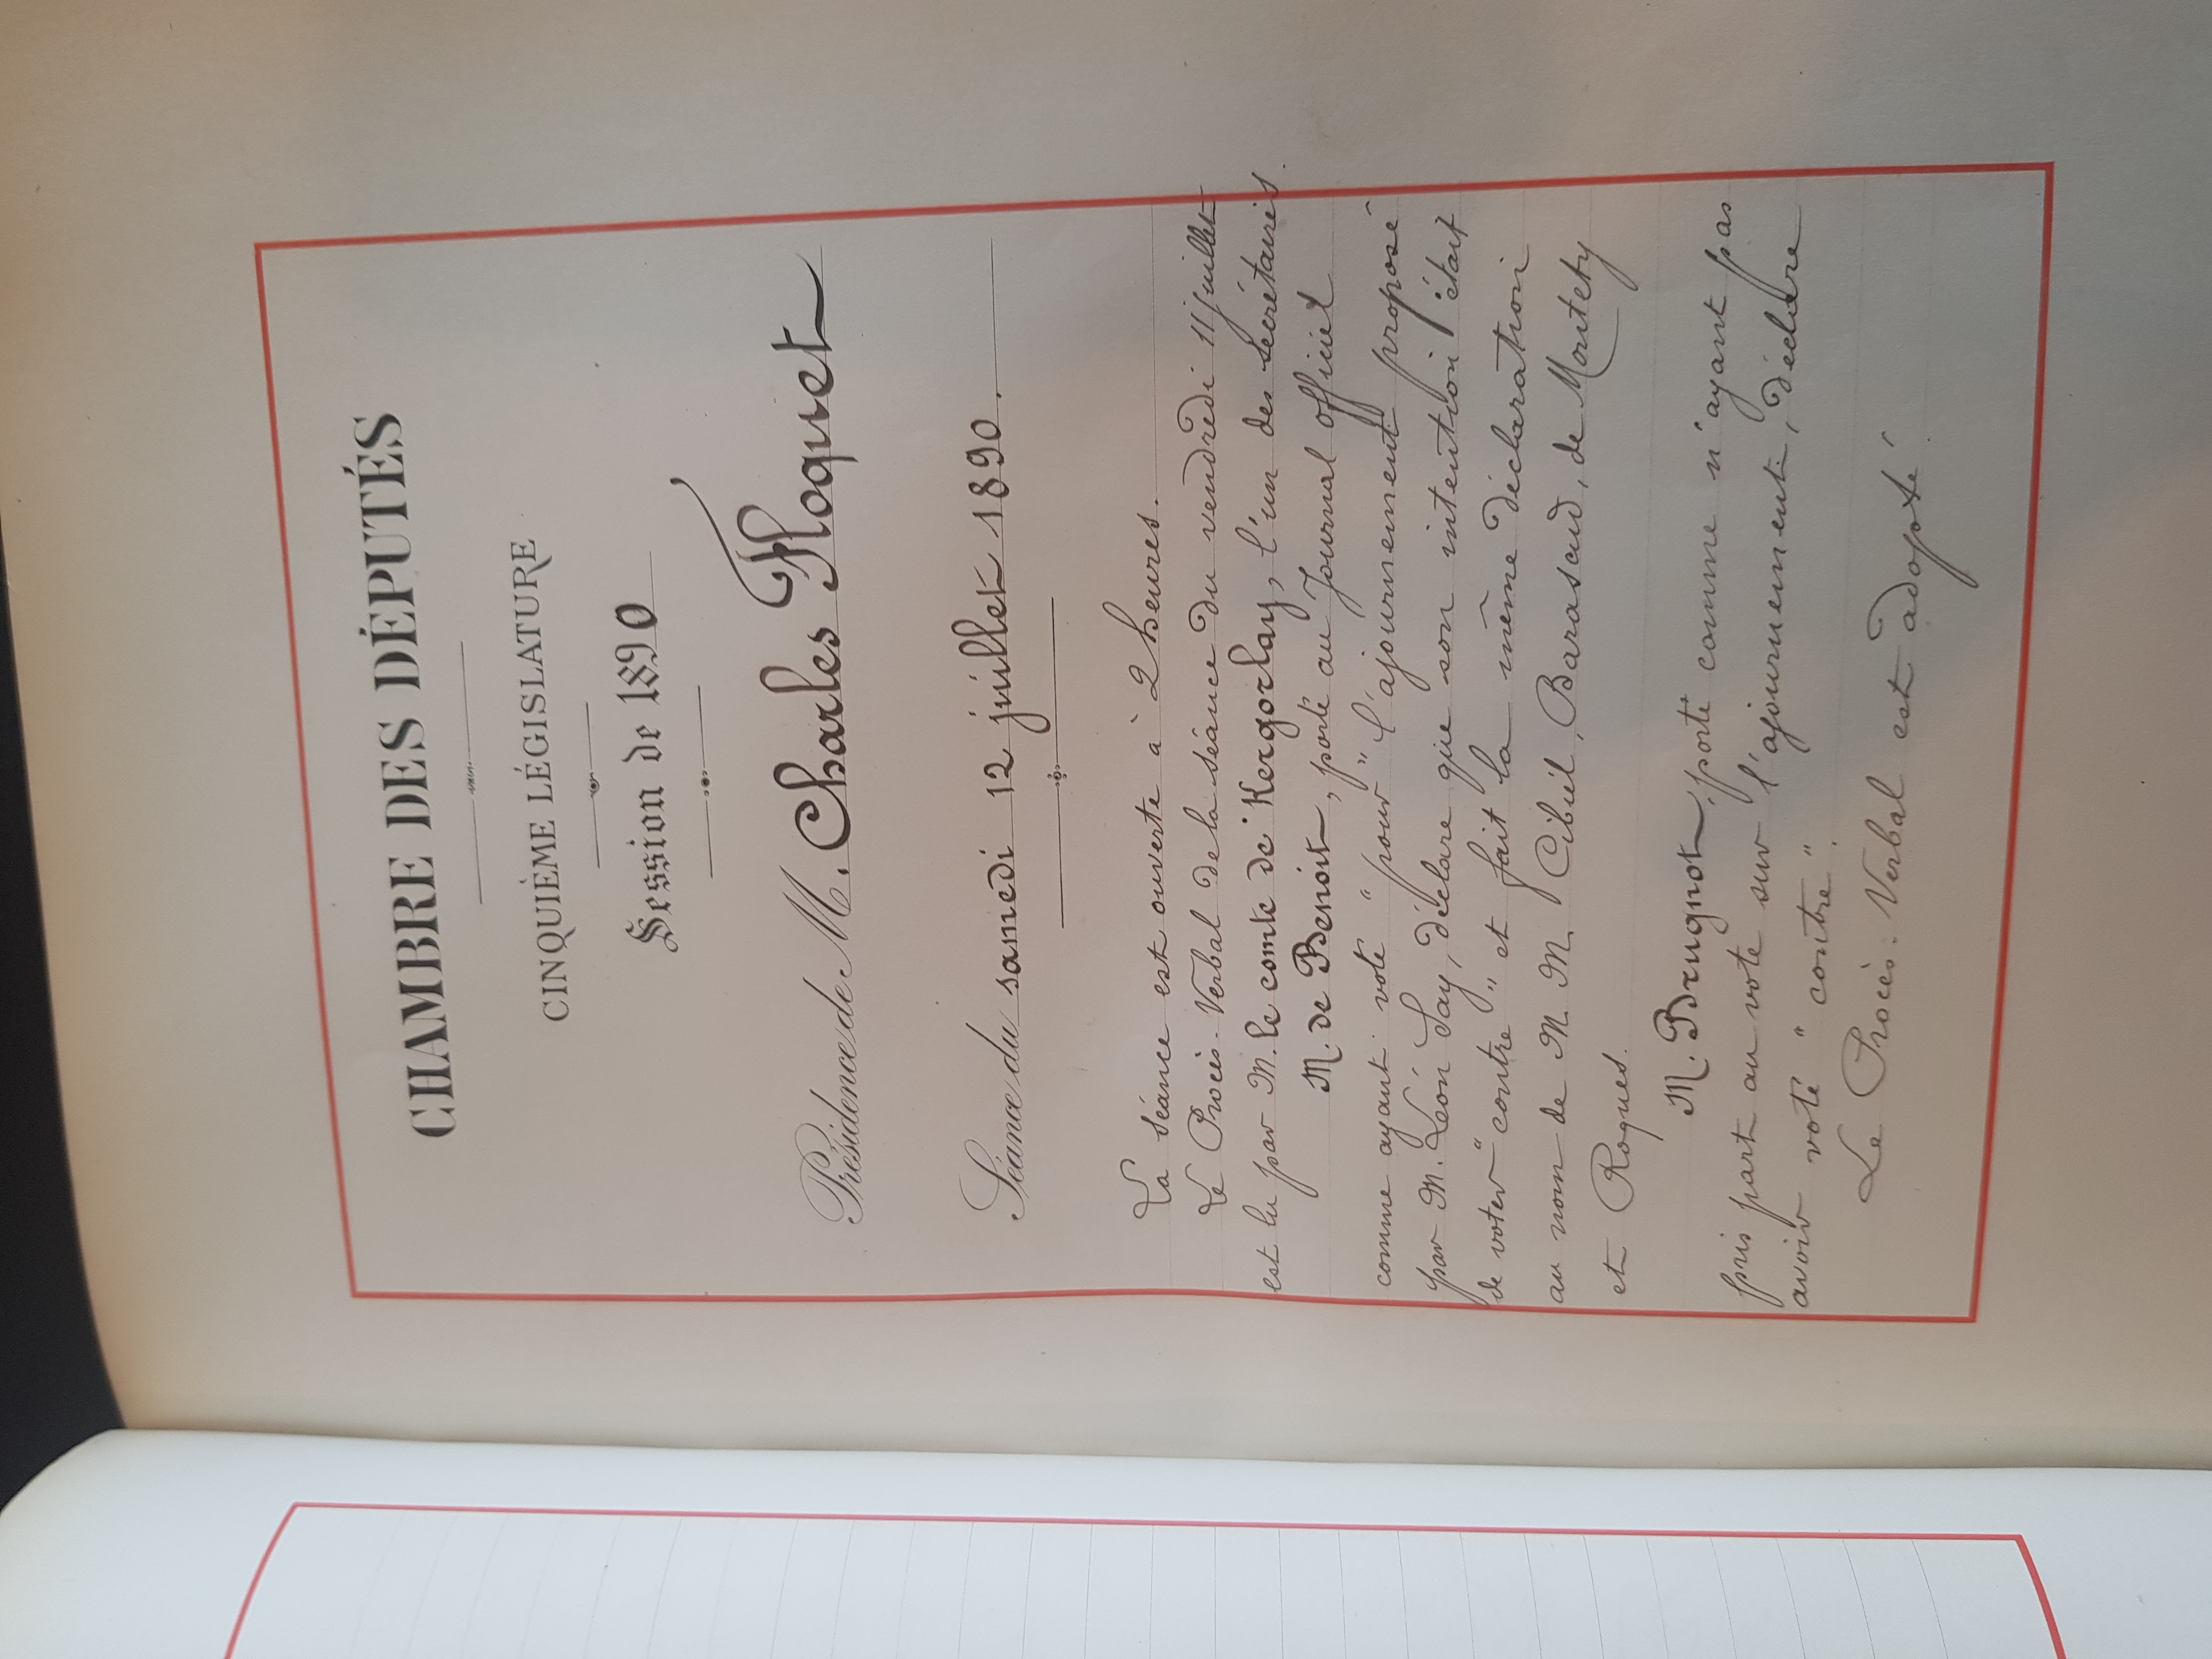 CHAMBRE DES DÉPUTÉS
CINQUIÈME LÉGISLATURE
Session de 1890
Présidence de M. Charles Floquet
Séance du samedi 12 juillet 1890.
La séance est ouverte à 2 heures.
Le Procès-Verbal de la séance du vendredi 11 juillet
est lu par M. le comte de Kergorlay, l'un des secrétaires.
M. de Benoit, porté au Journal officiel
comme ayant voté "pour" l'ajournement proposé
par M. Léon Say, déclare que son intention était
de voter "contre" et fait la même déclaration
au nom de M. M. Cibiel, Barascud, de Montety
et Roques.
M. Brugnot, porté comme n'ayant pas
pris part au vote sur l'ajournement, déclare
avoir voté "contre".
Le Procès-Verbal est adopté.